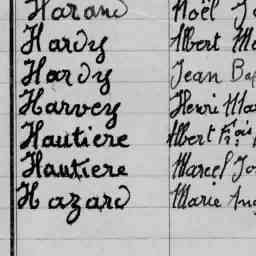 Harand Noël J
Hardy Albert M
Hardy Jean Bap
Harvey Henri Ma
Hautiere Albert Frçois
Hautiere Marcel Jo
Hazard Marie Ang